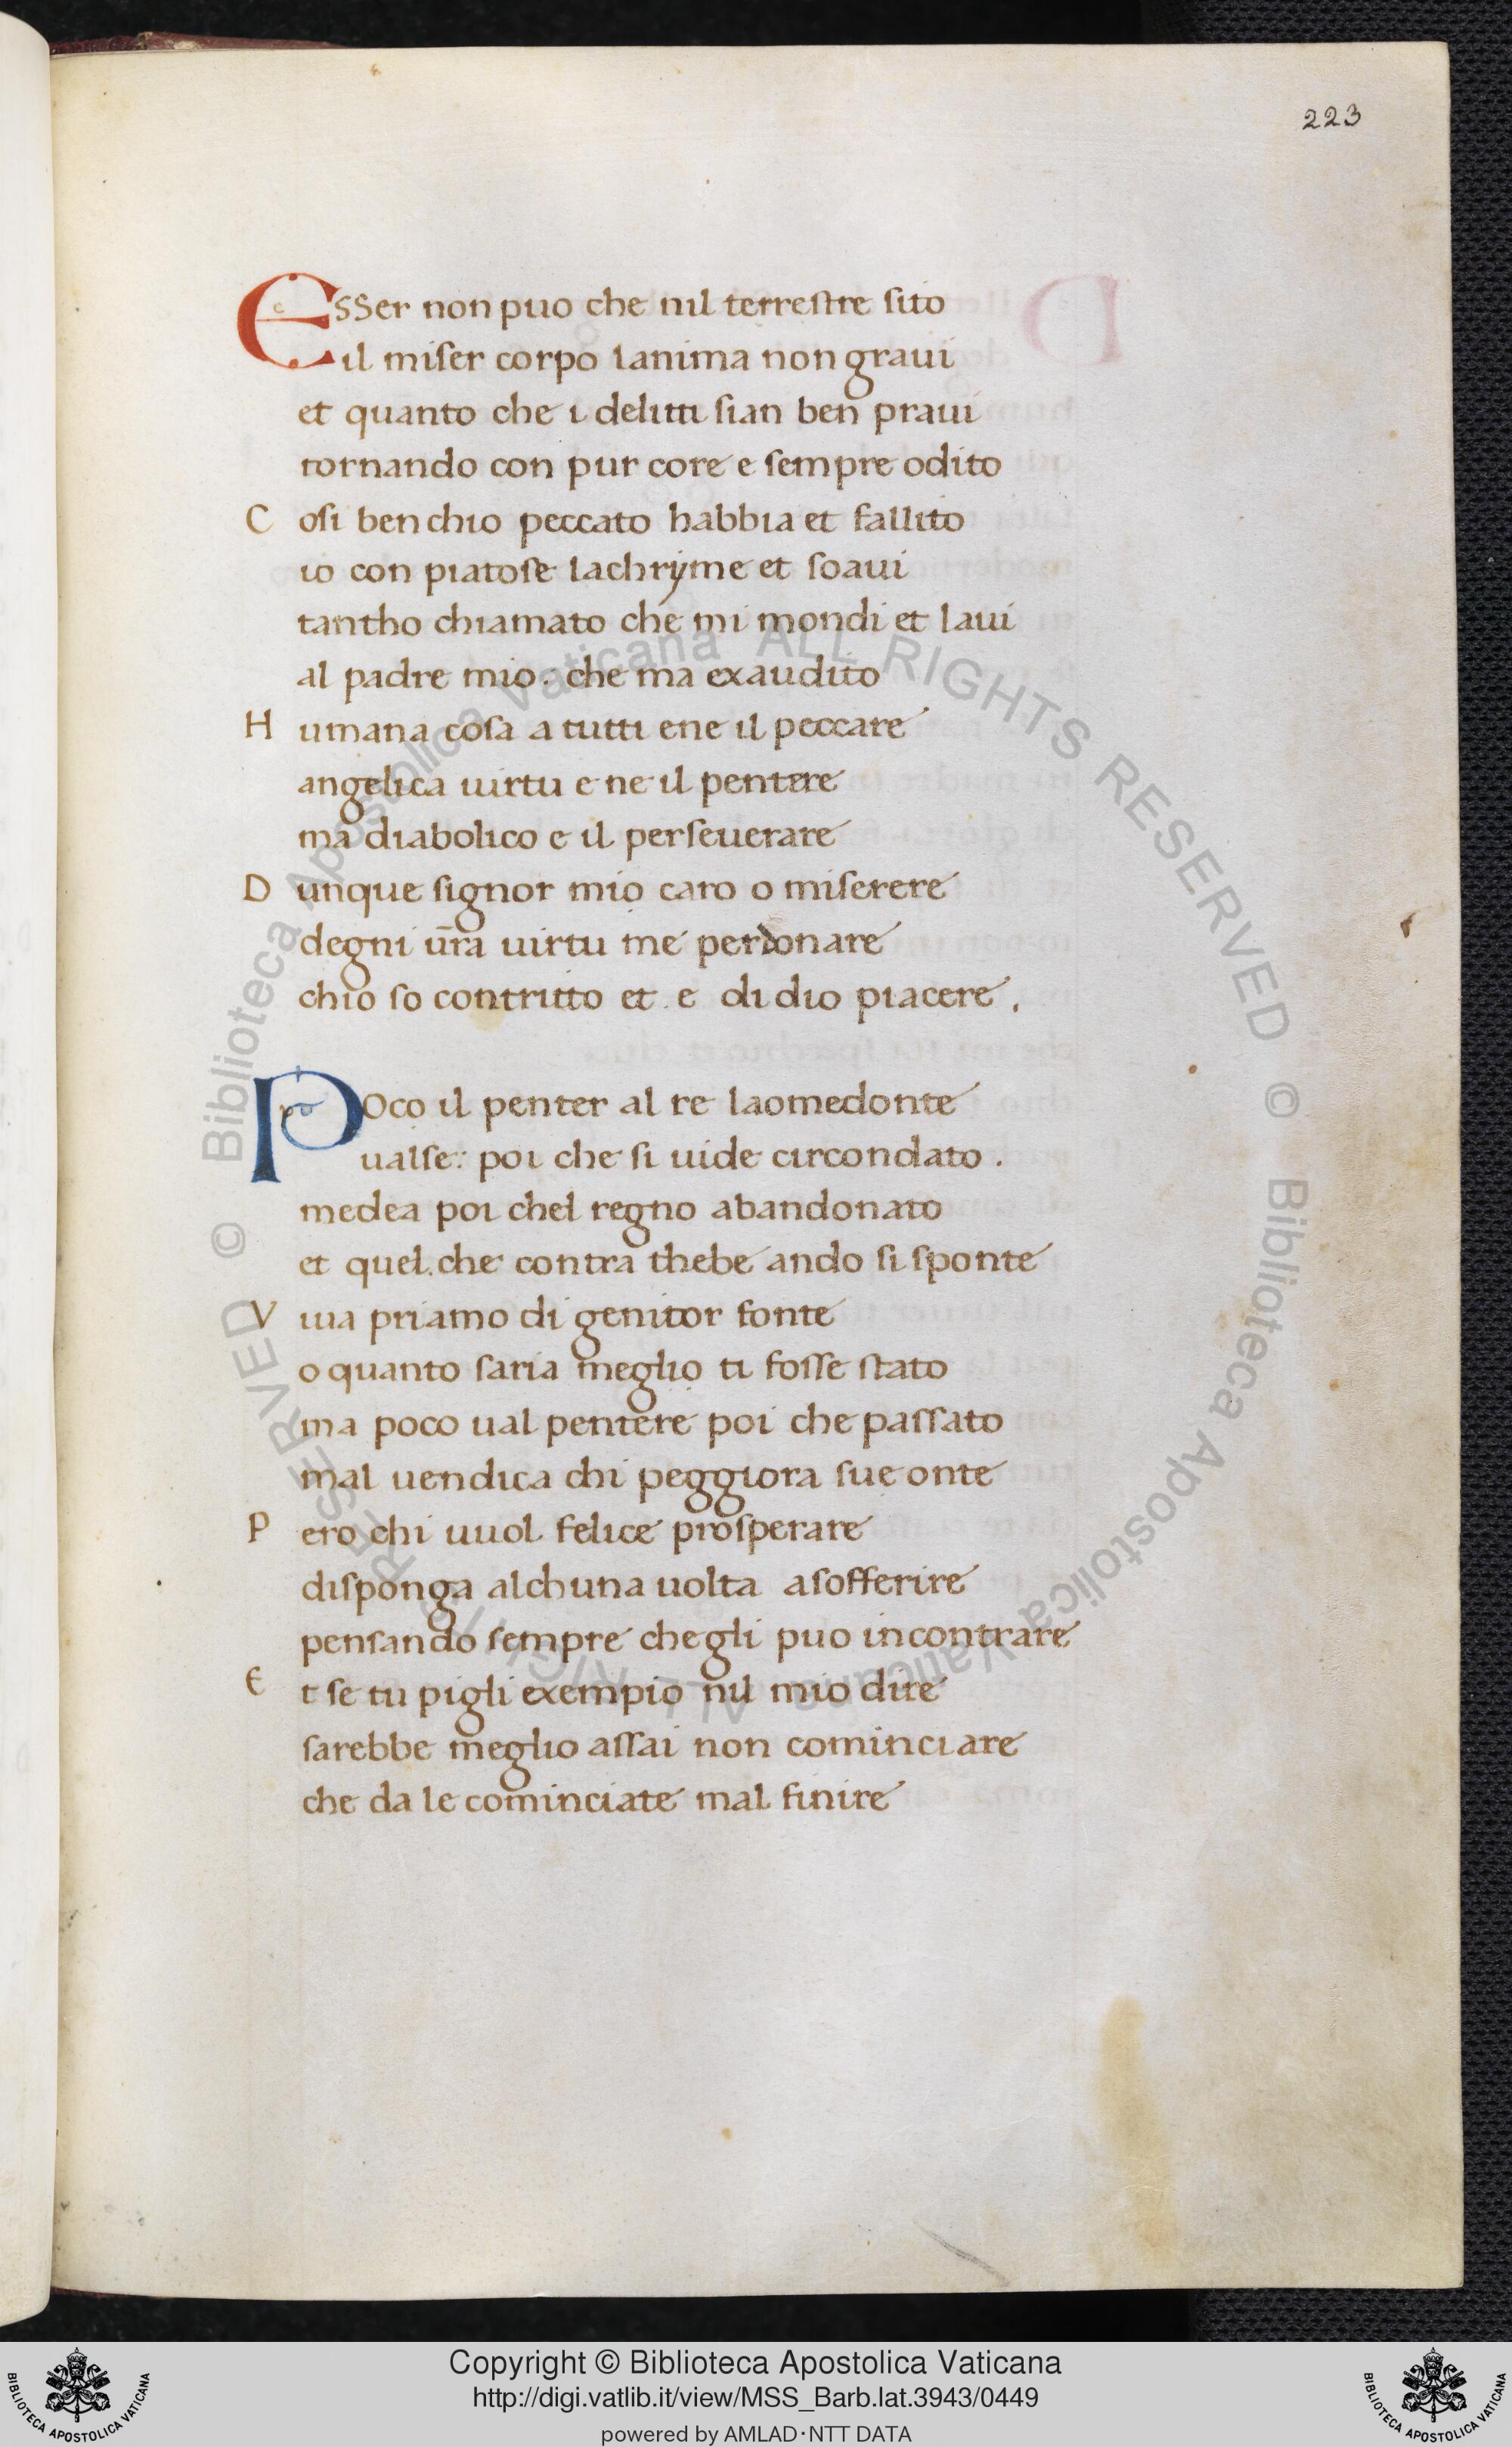 223
ESSer non puo che nil terrestre sito
il miser corpo lanima non graui
et quanto che i delitti sian ben praui
tornando con pur core e sempre odito
C osi ben chio peccato habbia et fallito
io con piatose lachryme et soaui
tantho chiamato che mi mondi et laui
al padre mio: che ma exaudito
H umana cosa a tutti ene il peccare
angelica uirtu e ne il pentere
ma diabolico e il perseuerare
D unque signor mio caro o miserere
degni ur̃a uirtu me perdonare
chio so contritto et e di dio piacere.
POco il penter al re laomedonte
ualse: poi che si uide circondato.
medea poi chel regno abandonato
et quel che contra thebe ando si sponte
V iua priamo di genitor fonte
o quanto saria meglio ti fosse stato
ma poco ual pentere poi che passato
mal uendica chi peggiora sue onte
P ero chi uuol felice prosperare
disponga alchuna uolta a sofferire
pensando sempre che gli puo incontrare
E t se tu pigli exempio nil mio dire
sarebbe meglio assai non cominciare
che da le cominciate mal finire
© Biblioteca Apostolica Vaticana ALL RIGHTS RESERVED © Biblioteca Apostolica Vaticana ALL RIGHTS RESERVED
Copyright © Biblioteca Apostolica Vaticana
http://digi.vatlib.it/view/MSS_Barb.lat.3943/0449
powered by AMLAD·NTT DATA
BIBLIOTECA APOSTOLICA VATICANA
BIBLIOTECA APOSTOLICA VATICANA